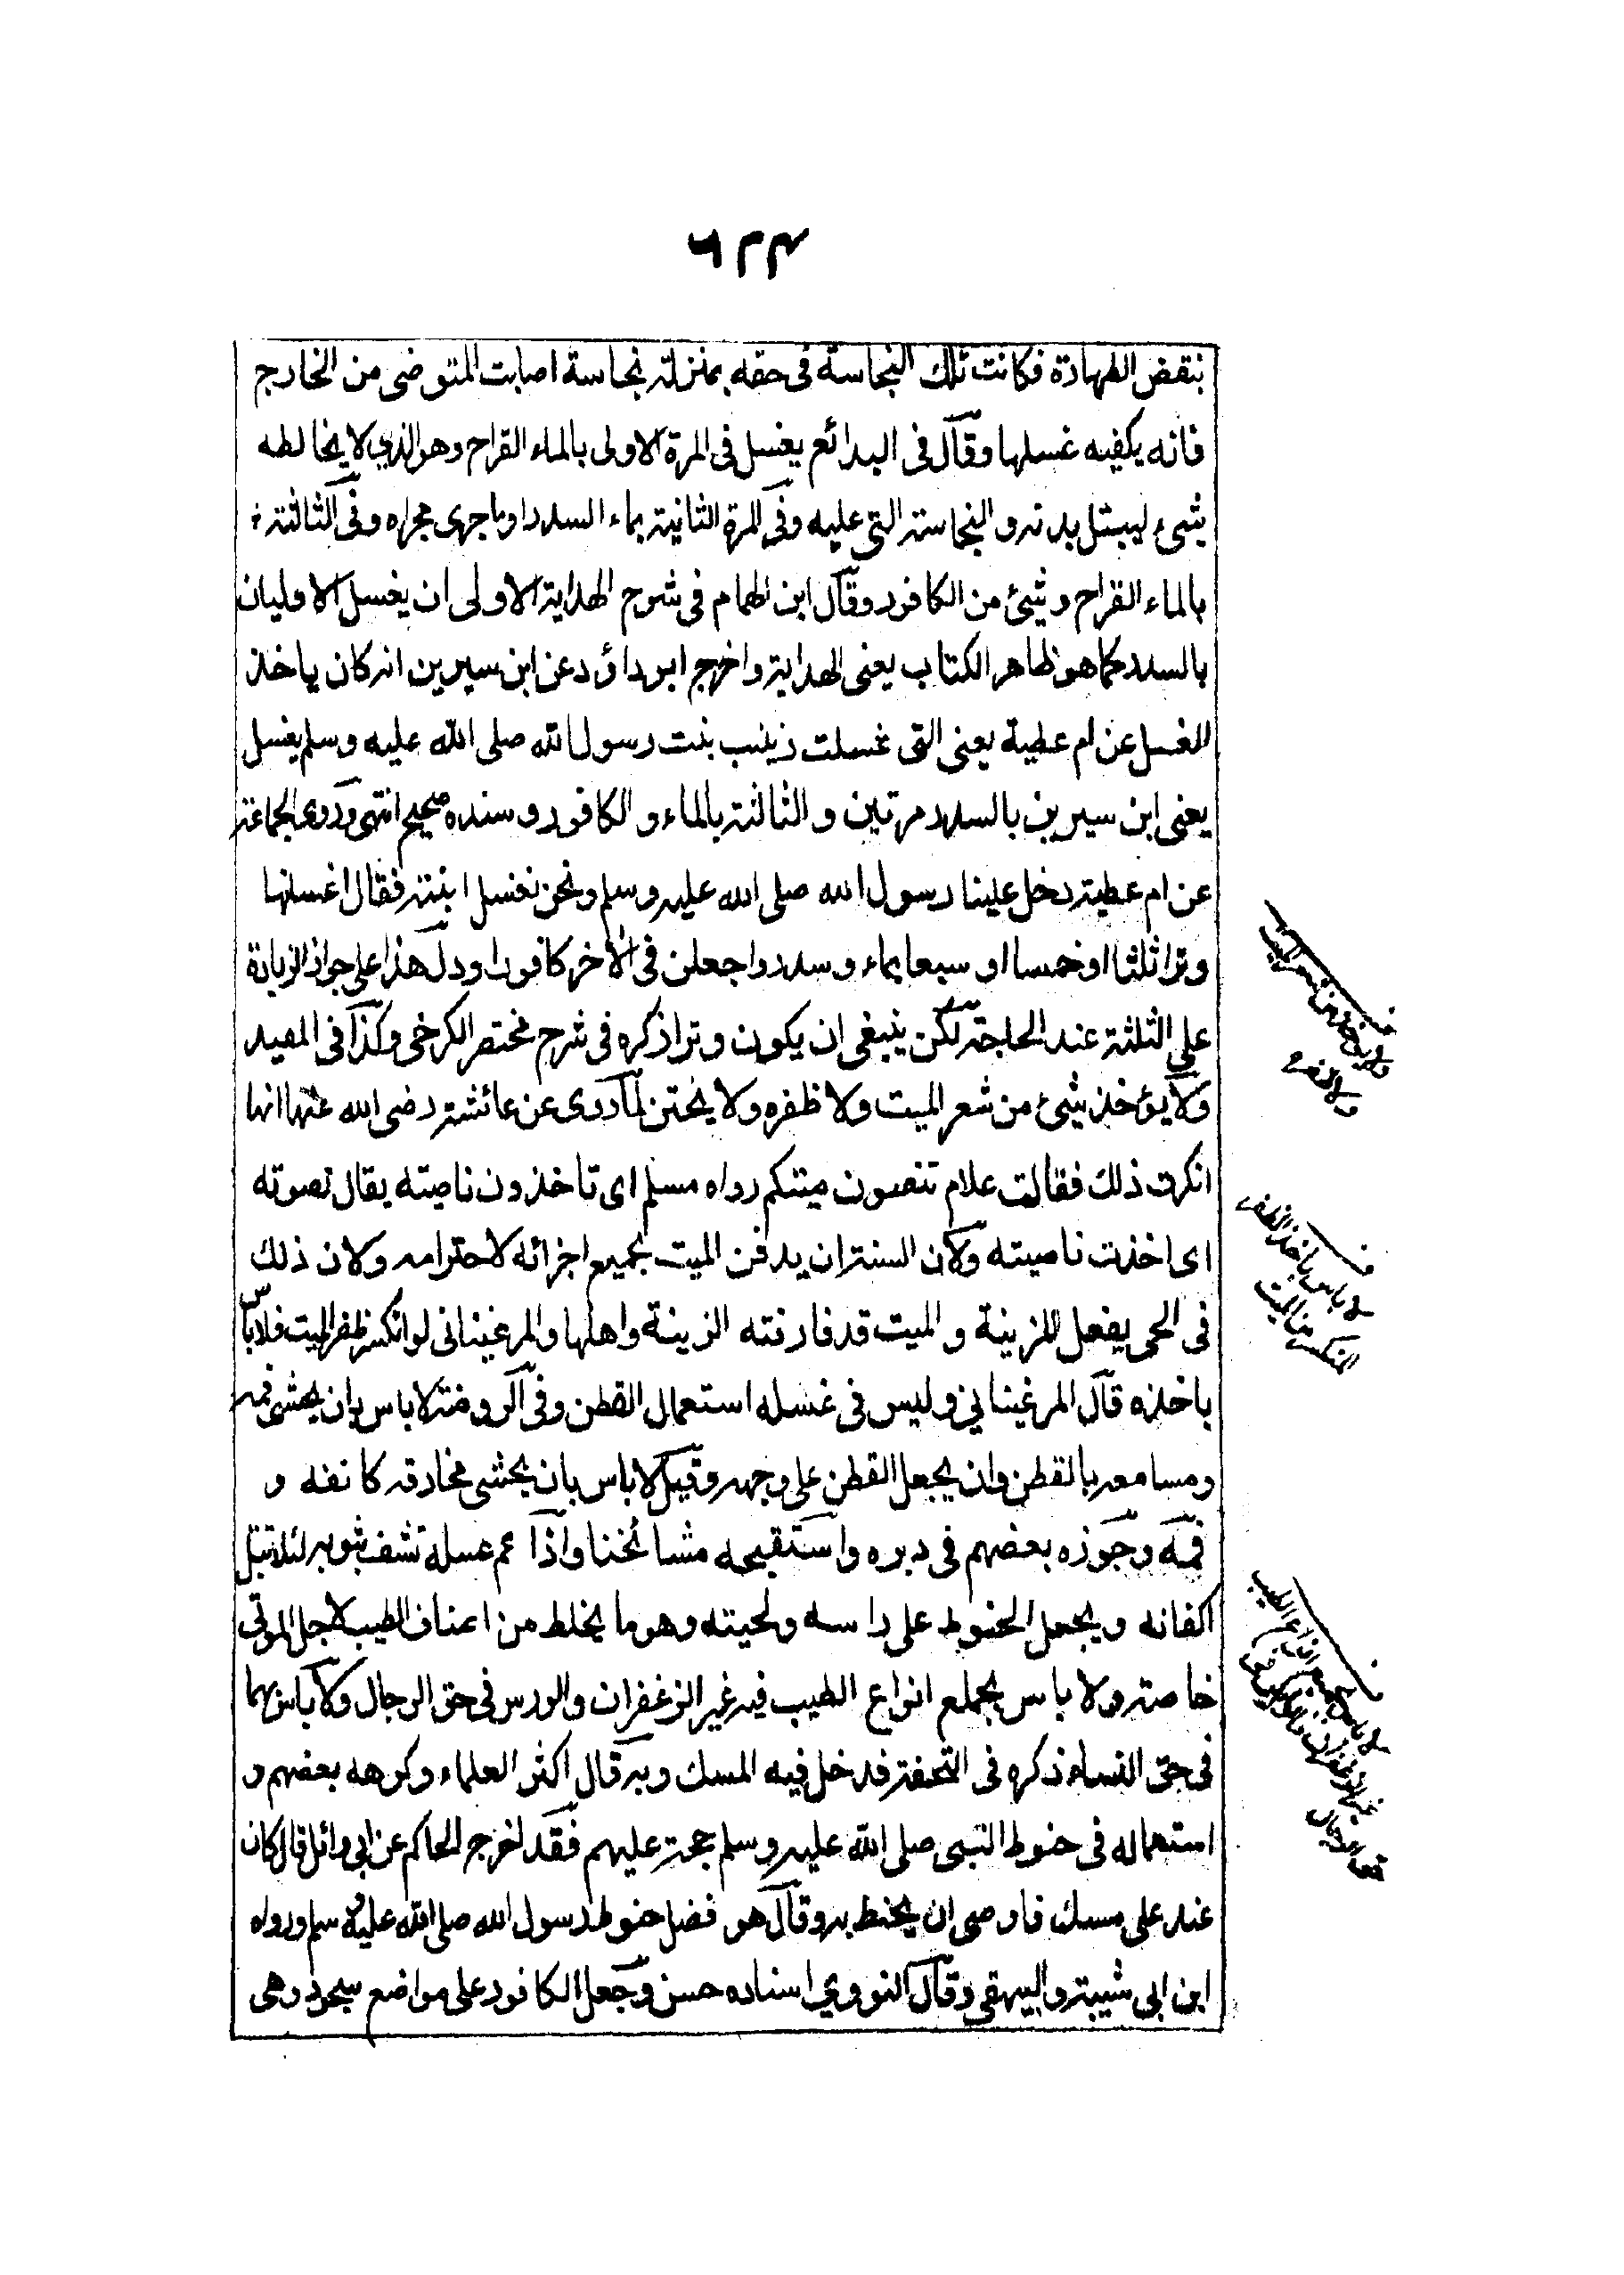 ٤٢٦
بنقض الطهارة فكانت تلك النجاسة فى حقه بمنزلة نجاسة اصابت المتوضى من الخارج
فانه يكفيه غسلها وقال فى البدائع يغسل فى المرة الاولى بالماء القراح وهو الذى لا يخالطه
شىء ليبتل بدنه والنجاسة التى عليه وفى المرة الثانية بماء السدر او ما جرى مجراه وفى الثالثة
بالماء القراح وشىء من الكافور وقال ابن الهمام فى شرح الهداية الاولى ان يغسل الاوليان
بالسدر كما هو ظاهر الكتاب يعنى الهداية واخرج ابو داؤد عن ابن سيرين انه كان ياخذ
الغسل عن ام عطية يعنى التى غسلت زينب بنت رسول الله صلى الله عليه وسلم يغسل
يعنى ابن سيرين بالسدر مرتين والثالثة بالماء والكافور وسنده صحيح انتهى وروى الجماعة
عن ام عطية دخل علينا رسول الله صلى الله عليه وسلم ونحن نغسل ابنته فقال اغسلنها
وترا ثلثا او خمسا او سبعا بماء وسدر واجعلن فى الاخر كافورا ودل هذا على جواز الزيادة
على الثلثة عند الحاجة لكن ينبغى ان يكون وترا ذكره فى شرح مختصر الكرخى وكذا فى المفيد
ولا يؤخذ شىء من شعر الميت ولا ظفره ولا يختن لما روى عن عائشة رضى الله عنها انها
انكرت ذلك فقالت علام تنصون ميتكم رواه مسلم اى تاخذون ناصيته يقال نصوته
اى اخذت ناصيته ولان السنة ان يدفن الميت بجميع اجزائه لاحترامه ولان ذلك
فى الحى يفعل للزينة والميت قد فارقته الزينة واهلها والمرغينانى لو انكسر ظفر الميت فلا باس
باخذه قال المرغينانى وليس فى غسله استعمال القطن وفى الروضة لا باس بان يحشى فمه
ومسامعه بالقطن وان يجعل القطن على وجهه وقيل لا باس بان يحشى مخارقه كانفه و
فمه وجوزه بعضهم فى دبره واستقبحه مشائخنا واذا تم غسله تنشف بثوبه لئلا تبتل
اكفانه ويجعل الحنوط على راسه ولحيته وهو ما يخلط من اصناف الطيب لاجل الموتى
خاصة ولا باس بجميع انواع الطيب فيه غير الزعفران والورس فى حق الرجال ولا باس بهما
فى حق النساء ذكره فى التحفة فدخل فيه المسك وبه قال اكثر العلماء وكرهه بعضهم و
استعماله فى حنوط النبى صلى الله عليه وسلم حجة عليهم فقد اخرج الحاكم عن ابى وائل قال كان
عند على مسك فاوصى ان يحنط به وقال هو فضل حنوط رسول الله صلى الله عليه وسلم ورواه
ابن ابى شيبة والبيهقى وقال النووى اسناده حسن وجعل الكافور على مواضع سجوده وهى
ولا يؤخذ من شعر الميت
ولا ظفره
لا باس باخذ الظفر
المنكسر من الميت
لا باس بجميع انواع الطيب
غير الزعفران والورس فى
حق الرجال